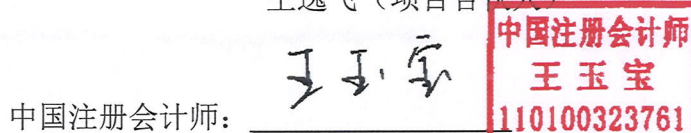 中国注册会计师
王玉宝
中国注册会计师：
王玉宝
110100323761